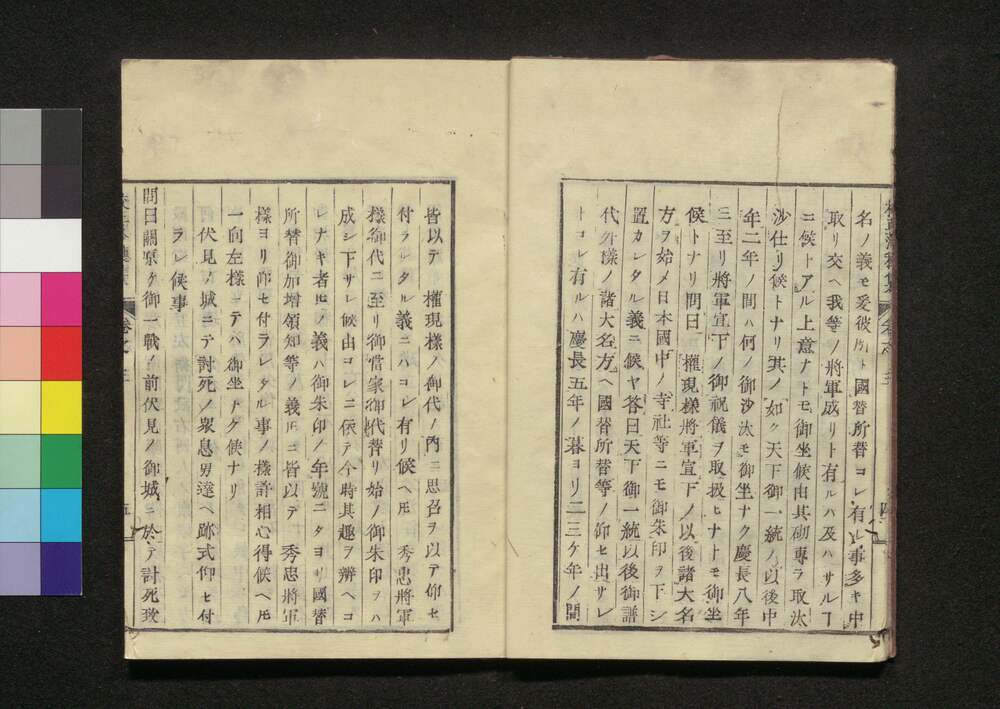 名ノ義モ爰彼所ト國替所替コレ有レ事多キ中
取リ交ヘ我等ノ將軍成リト有ルハ及ハサルヿ
ニ候トアル上意ナトモ御坐候由其砌專ラ取汰
沙仕リ候トナリ其ノ如ク天下御一統ノ以後中
年二年ノ間ハ何ノ御沙汰モ御坐ナク慶長八年
ニ至リ將軍宣下ノ御祝儀ヲ取扱ヒナトモ御坐
候トナリ問曰 權現樣將軍宣下ノ以後諸大名
方ヲ始メ日本國中ノ寺社等ニモ御朱印ヲ下シ
置カレタル義ニ候ヤ答曰天下御一統以後御譜
代外樣ノ諸大名方ヘ國替所替等ノ仰セ出サレ
トコレ有ルハ慶長五年ノ暮ヨリ二三ケ年ノ間
皆以テ 權現樣ノ御代ノ内ニ思召ヲ以テ仰セ
付ラレタル義ニハコレ有リ候ヘ𪜈 秀忠將軍
樣御代ニ至リ御當家御代替リ始ノ御朱印ヲハ
成シ下サレ候由コレニ依テ今時其趣ヲ辨ヘコ
レナキ者𪜈ノ義ハ御朱印ノ年號ニタヨリ國替
所替御加增領知等ノ義𪜈ニ皆以テ 秀忠將軍
樣ヨリ仰セ付ラレタル事ノ樣許相心得候ヘ𪜈
一向左樣ニテハ御坐ナク候ナリ
伏見ノ城ニテ討死ノ衆息男達ヘ跡式仰セ付
ラレ候事
問曰關原ク御一戰ノ前伏見ノ御城ニ於テ討死致